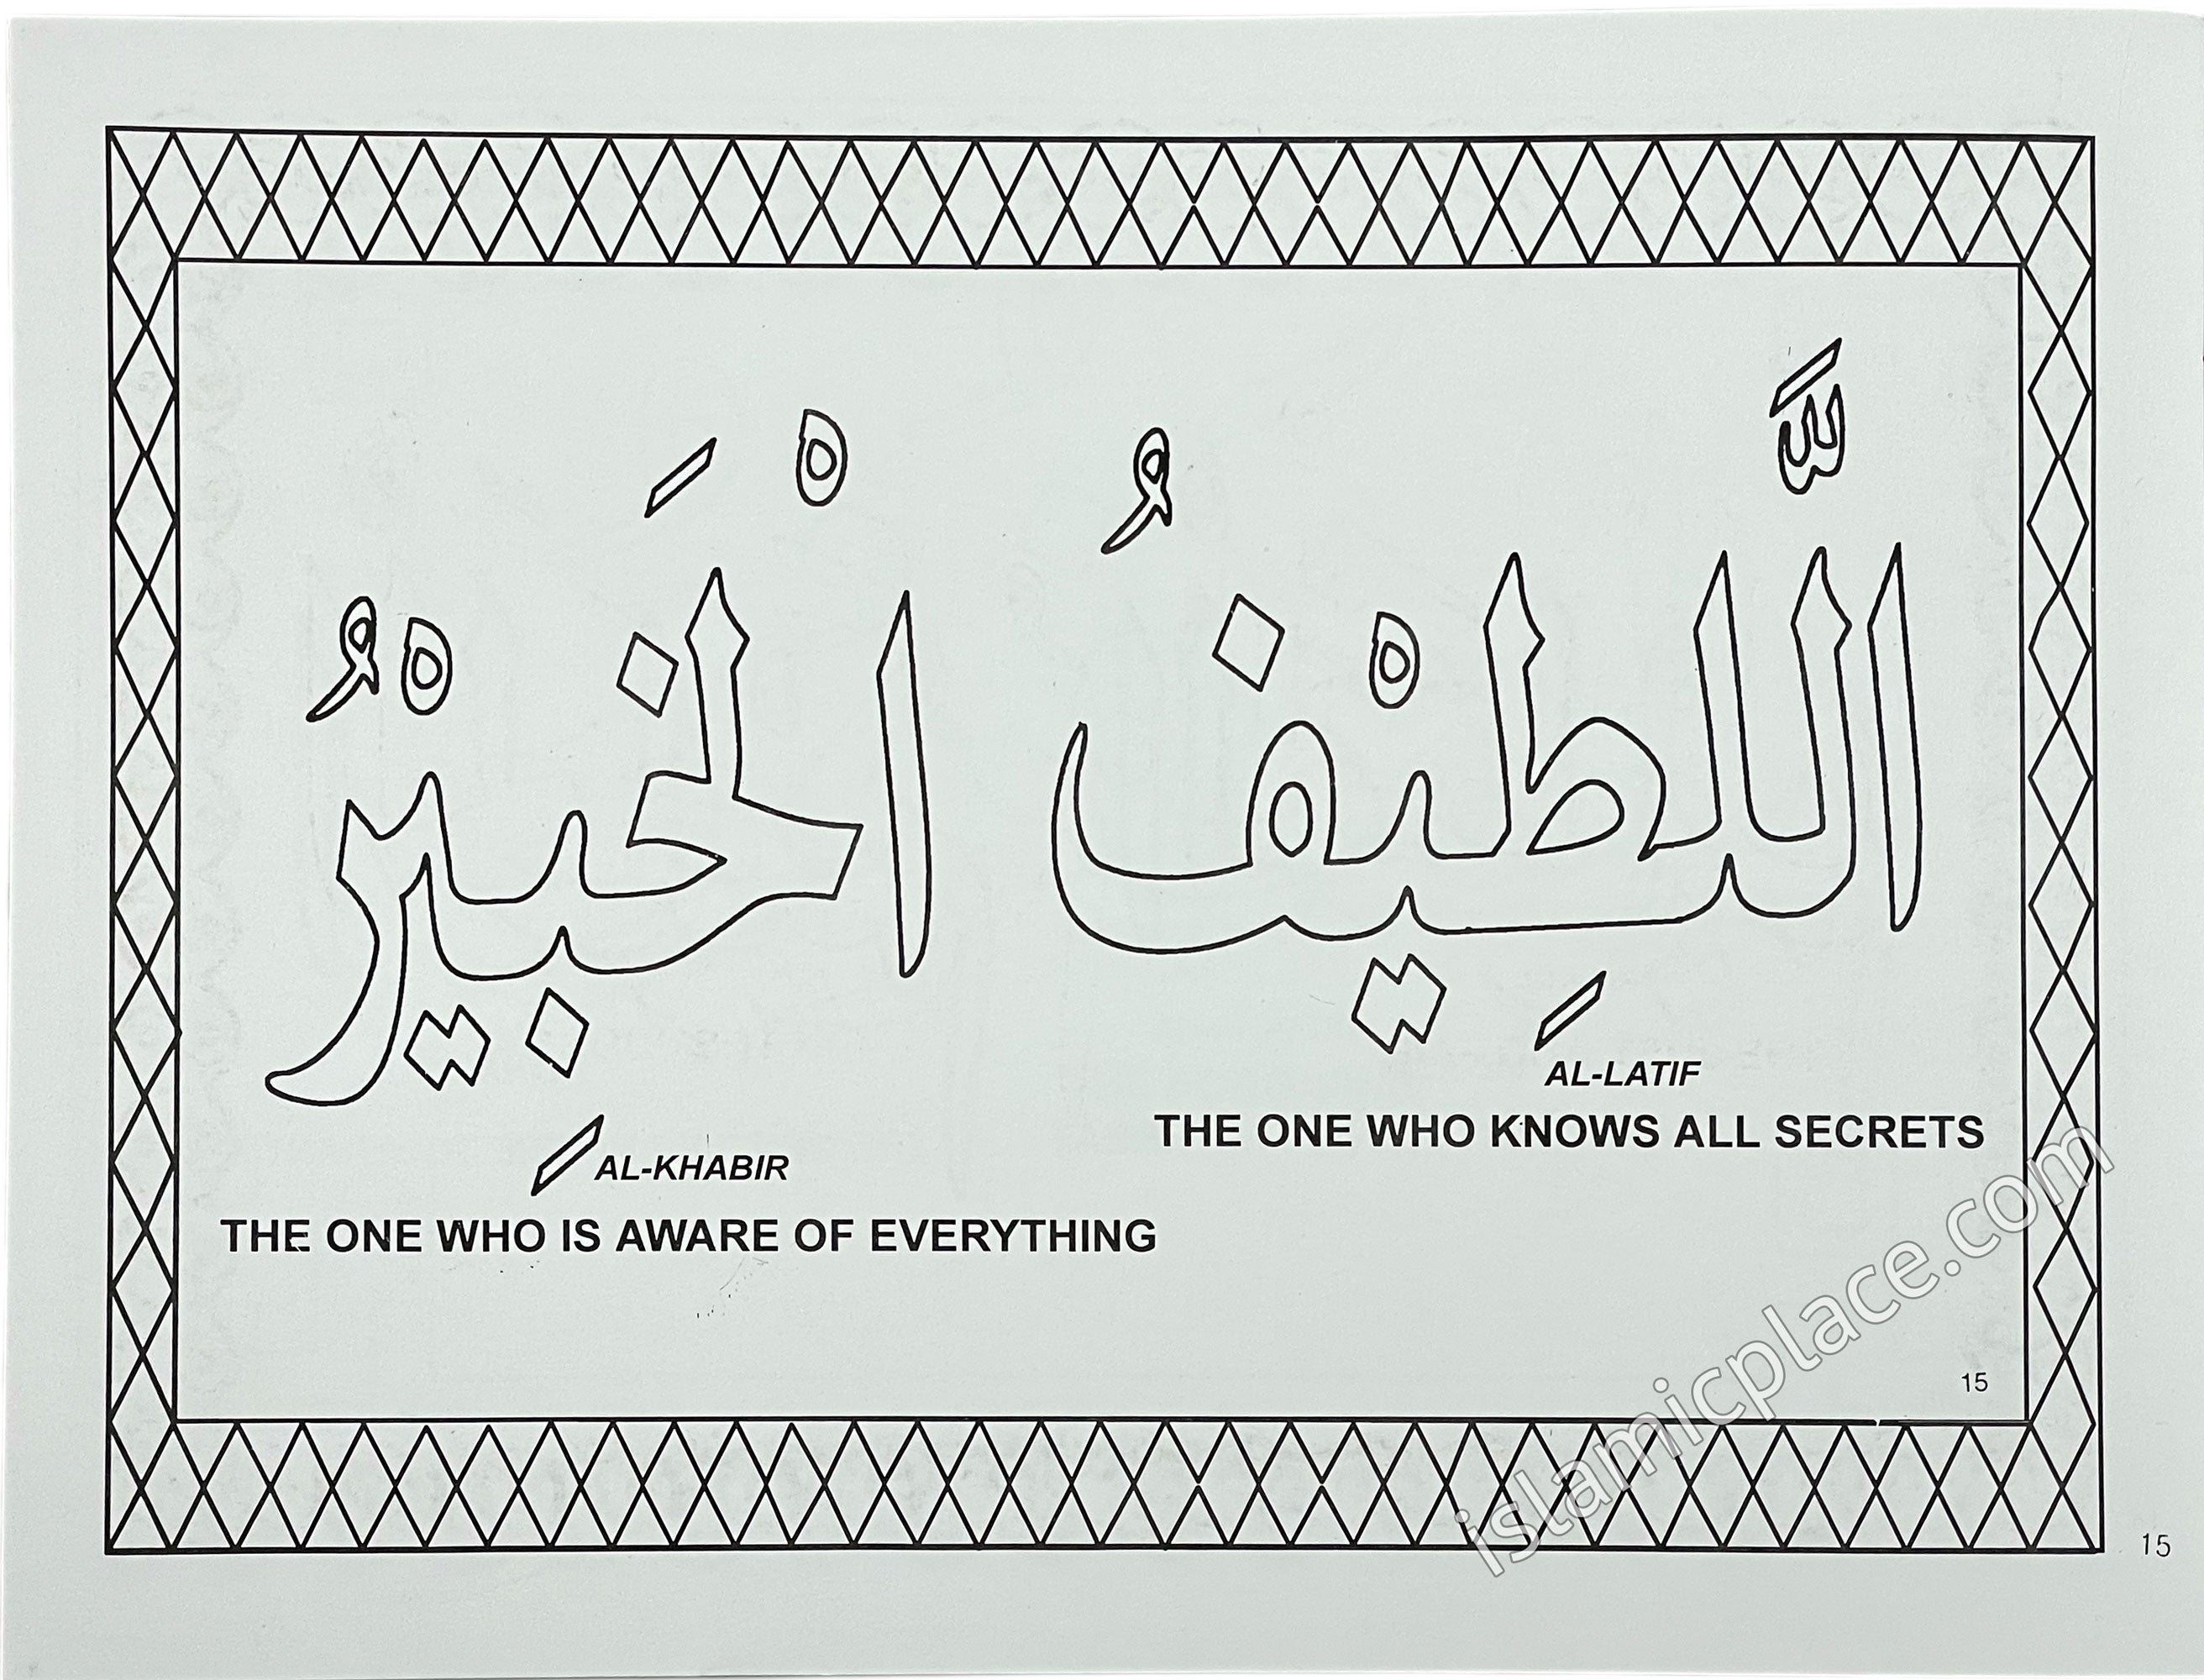 اللَّطِيْفُ الْخَبِيْرُ
AL-LATIF
THE ONE WHO KNOWS ALL SECRETS
AL-KHABIR
THE ONE WHO IS AWARE OF EVERYTHING
15
15
islamicplace.com